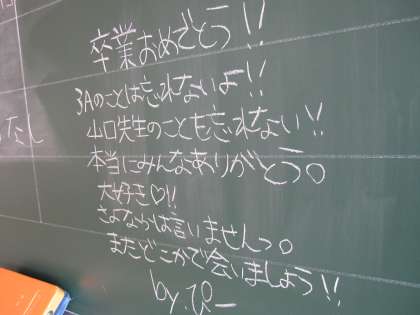 卒業おめでとう!!
3Aのことは忘れないよー!!
山口先生のことも忘れない!!
本当にみんなありがとう。
大好き♡!!
さよならは言いませんっ。
またどこかで会いましょう!!
by.ぴー